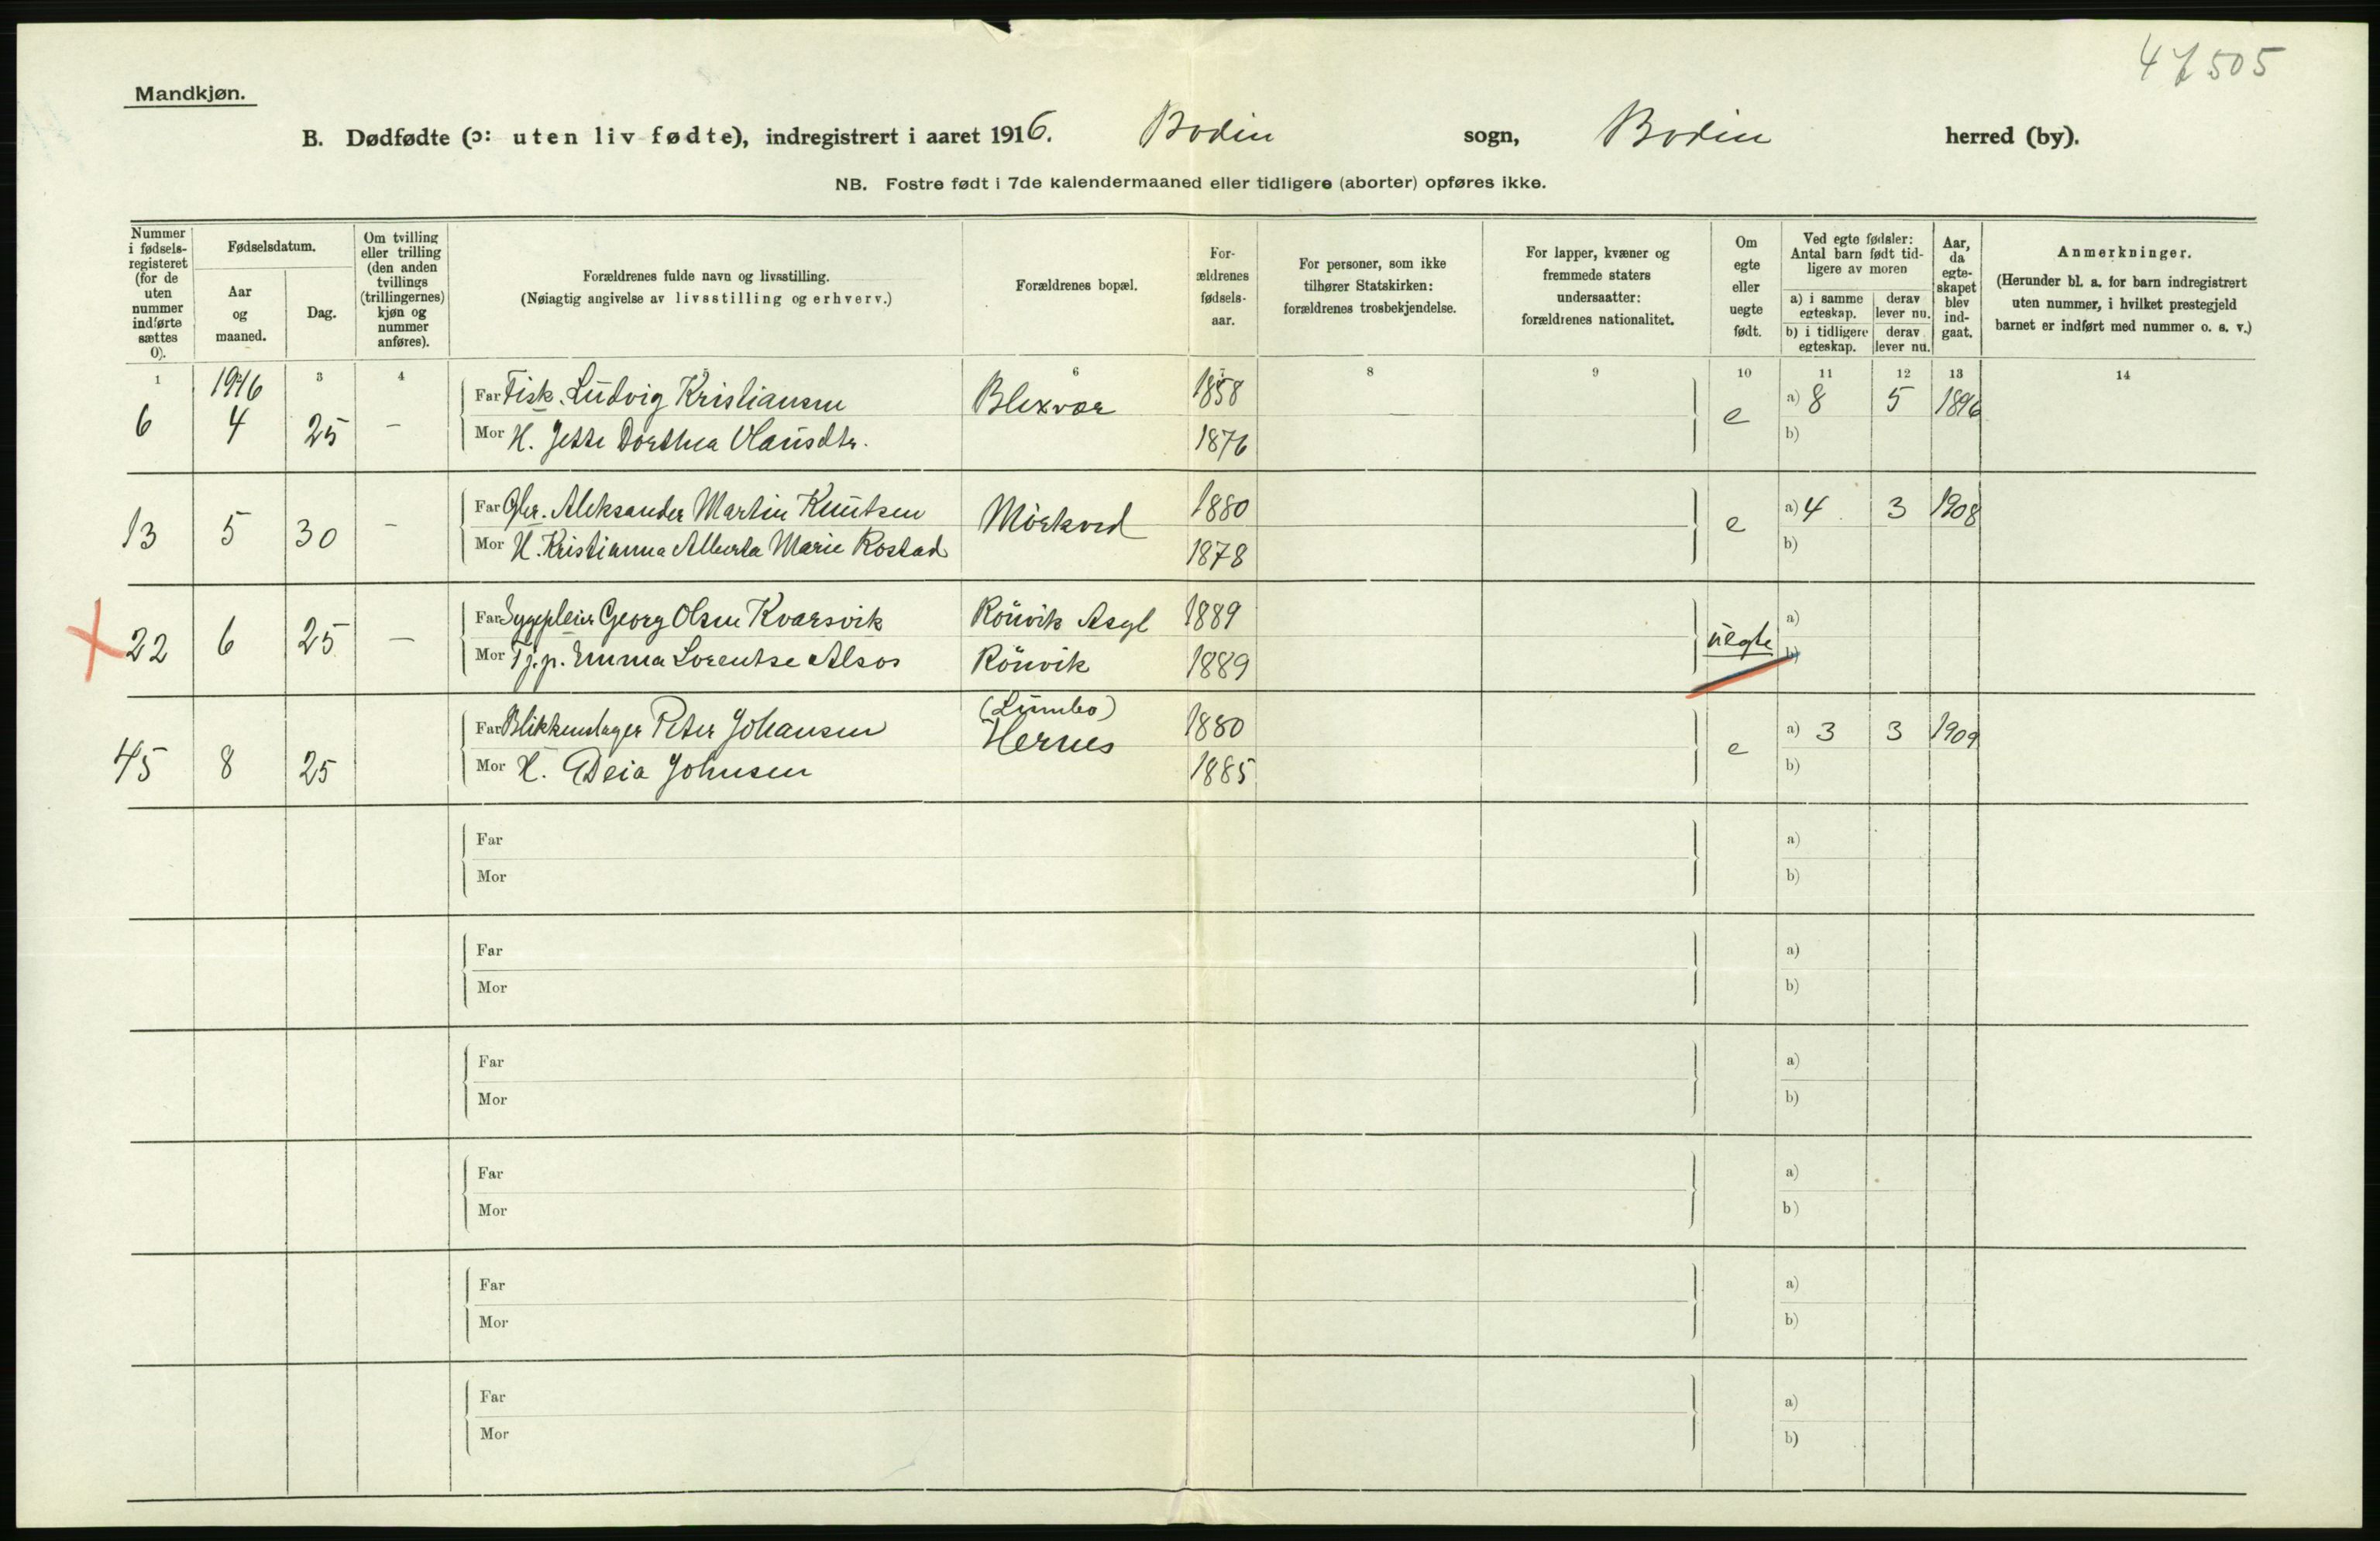 47505
Mandkjøn.
B. Dødfødte (ɔ: uten liv fødte), indregistrert i aaret 1916. Bodin sogn, Bodin herred (by).
NB. Fostre født i 7de kalendermaaned eller tidligere (aborter) opføres ikke.
Nummer i fødsels-registeret (for de uten nummer indførte sættes 0).
Fødselsdatum.
Aar og maaned.
Dag.
Om tvilling eller trilling (den anden tvillings (trillingernes) kjøn og nummer anføres).
Forældrenes fulde navn og livsstilling.
(Nøiagtig angivelse av livsstilling og erhverv.)
Forældrenes bopæl.
For-ældrenes fødsels-aar.
For personer, som ikke tilhører Statskirken: forældrenes trosbekjendelse.
For lapper, kvæner og fremmede staters undersaatter: forældrenes nationalitet.
Om egte eller uegte født.
Ved egte fødsler: Antal barn født tid-ligere av moren
a) i samme egteskap.
derav lever nu.
b) i tidligere egteskap.
derav lever nu.
Aar, da egte-skapet blev ind-gaat.
Anmerkninger.
(Herunder bl. a. for barn indregistrert uten nummer, i hvilket prestegjeld barnet er indført med nummer o. s. v.)
1 3 4 6 8 9 10 11 12 13 14
1916
Far Fisk. Ludvig Kristiansen Blixvær 1858 a) 8 5 1896
6 4 25 — e
Mor H. Jette Dorthea Olausdtr. 1876 b)
Far Gbr. Aleksander Martin Knutsen Mörkved 1880 a) 4 3 1908
13 5 30 — e
Mor H. Kristianna Alberta Marie Rostad 1878 b)
Far Sygepleier Georg Olsen Kvarsvik Rönvik Asyl 1889 a)
22 6 25 — uegte
Mor Tj.p. Emma Lorentse Alsos Rönvik 1889 b)
Far Blikkenslager Peter Johansen Hernes 1880 a) 3 3 1909
45 8 25 e
Mor H. Johnsen 1885 b)
Far a)
Mor b)
Far a)
Mor b)
Far a)
Mor b)
Far a)
Mor b)
Far a)
Mor b)
Far a)
Mor b)